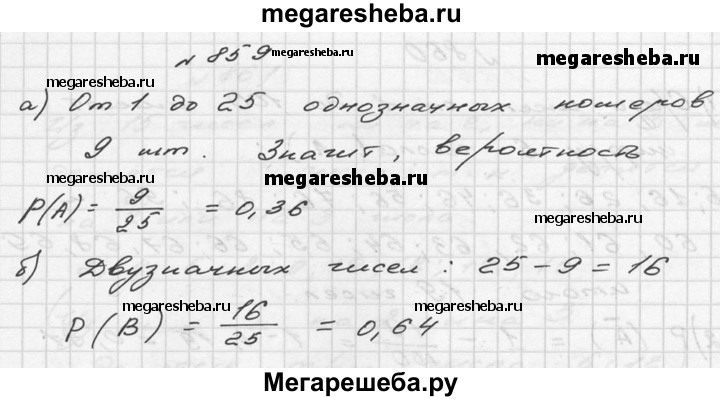 megaresheba.ru
№ 859 megaresheba.ru
megaresheba.ru megaresheba.ru
а) От 1 до 25 однозначных номеров
9 шт. Значит, вероятность
megaresheba.ru megaresheba.ru
P(A) = 9/25 = 0,36
megaresheba.ru
б) Двузначных чисел : 25 - 9 = 16
megaresheba.ru megaresheba.ru
P(B) = 16/25 = 0,64
Мегарешеба.ру